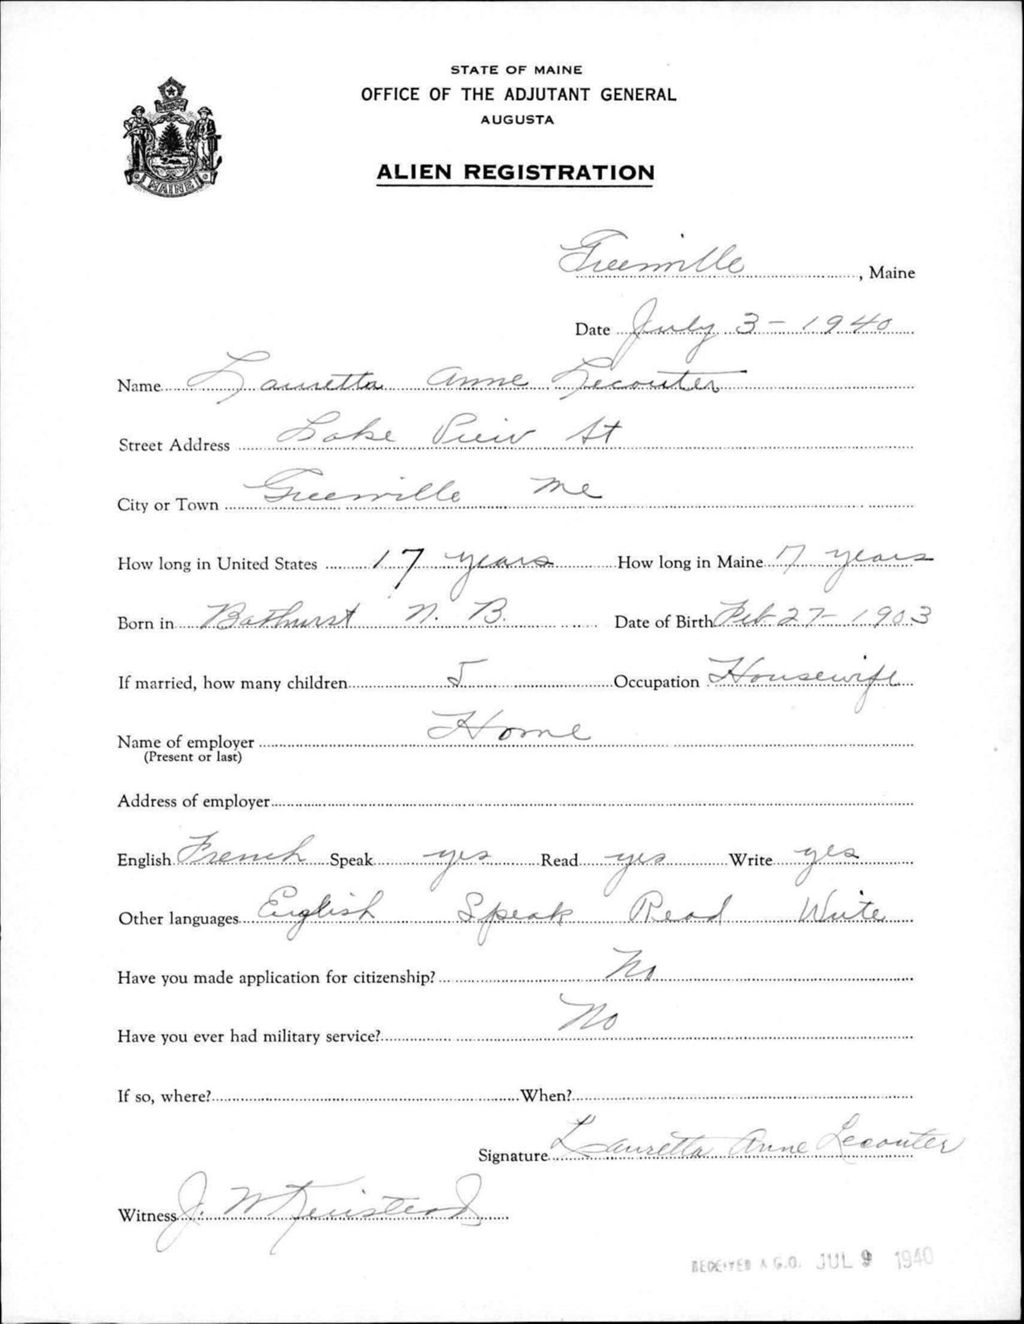 STATE OF MAINE
OFFICE OF THE ADJUTANT GENERAL
AUGUSTA
MAINE
ALIEN REGISTRATION
Greenville, Maine
Date July 3 - 1940
Name Lauretta Anne Lecouter
Street Address Lake View St
City or Town Greenville Me
How long in United States 17 years How long in Maine 7 years
Born in Bathurst N. B. Date of Birth Feb 27 - 1903
If married, how many children 5 Occupation Housewife
Name of employer Home
(Present or last)
Address of employer
English French Speak yes Read yes Write yes
Other languages English Speak Read Write
Have you made application for citizenship? No
Have you ever had military service? No
If so, where? When?
Signature Lauretta Anne Lecouter
Witness J. W
RECEIVED A.G.O. JUL 9 1940